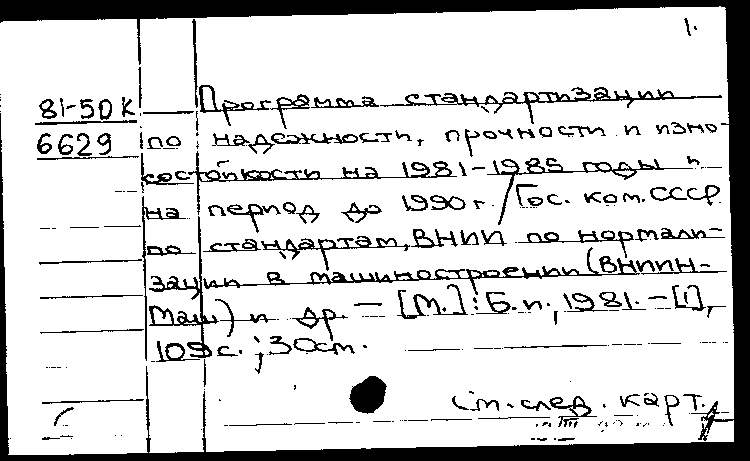 1.
81-50К Программа стандартизации
6629 по надежности, прочности и изно-
состойкости на 1981-1985 годы и
на период до 1990г. / Гос. ком. СССР
по стандартам, ВНИИ по нормали-
зации в машиностроении (ВНИИН-
Маш) и др. — [М.]: Б.и., 1981. — [1],
109с. ; 30см.
См. след. карт.